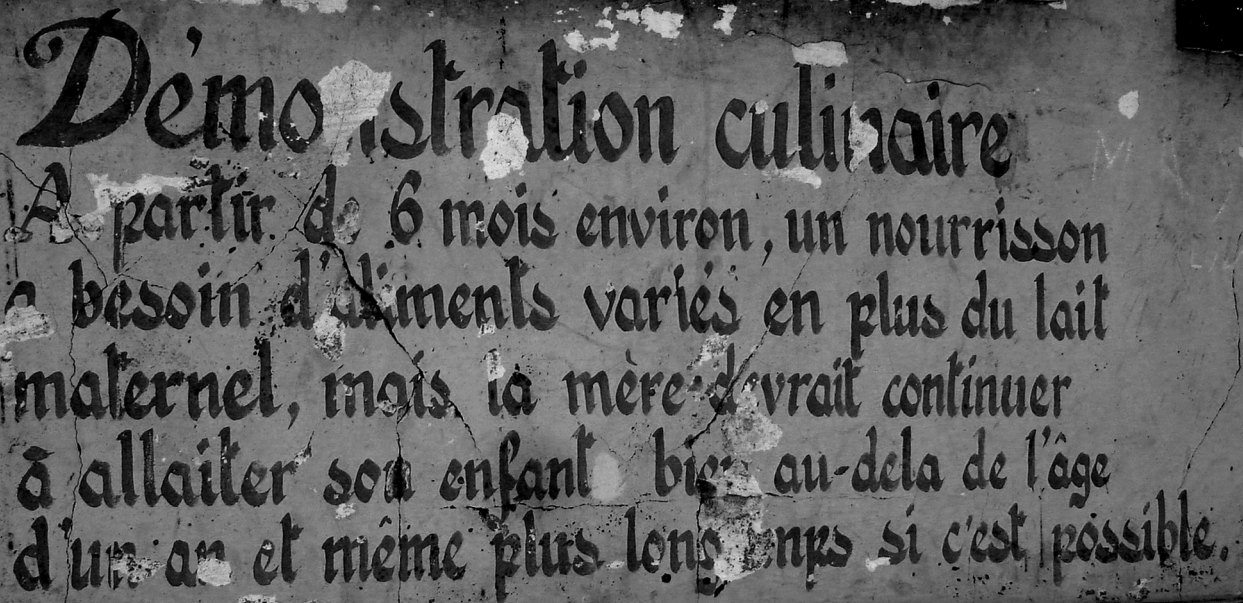 Démonstration culinaire
A partir de 6 mois environ, un nourrisson
a besoin d'aliments variés en plus du lait
maternel, mais la mère devrait continuer
à allaiter son enfant bien au-dela de l'âge
d'un an et même plus longtemps si c'est possible.